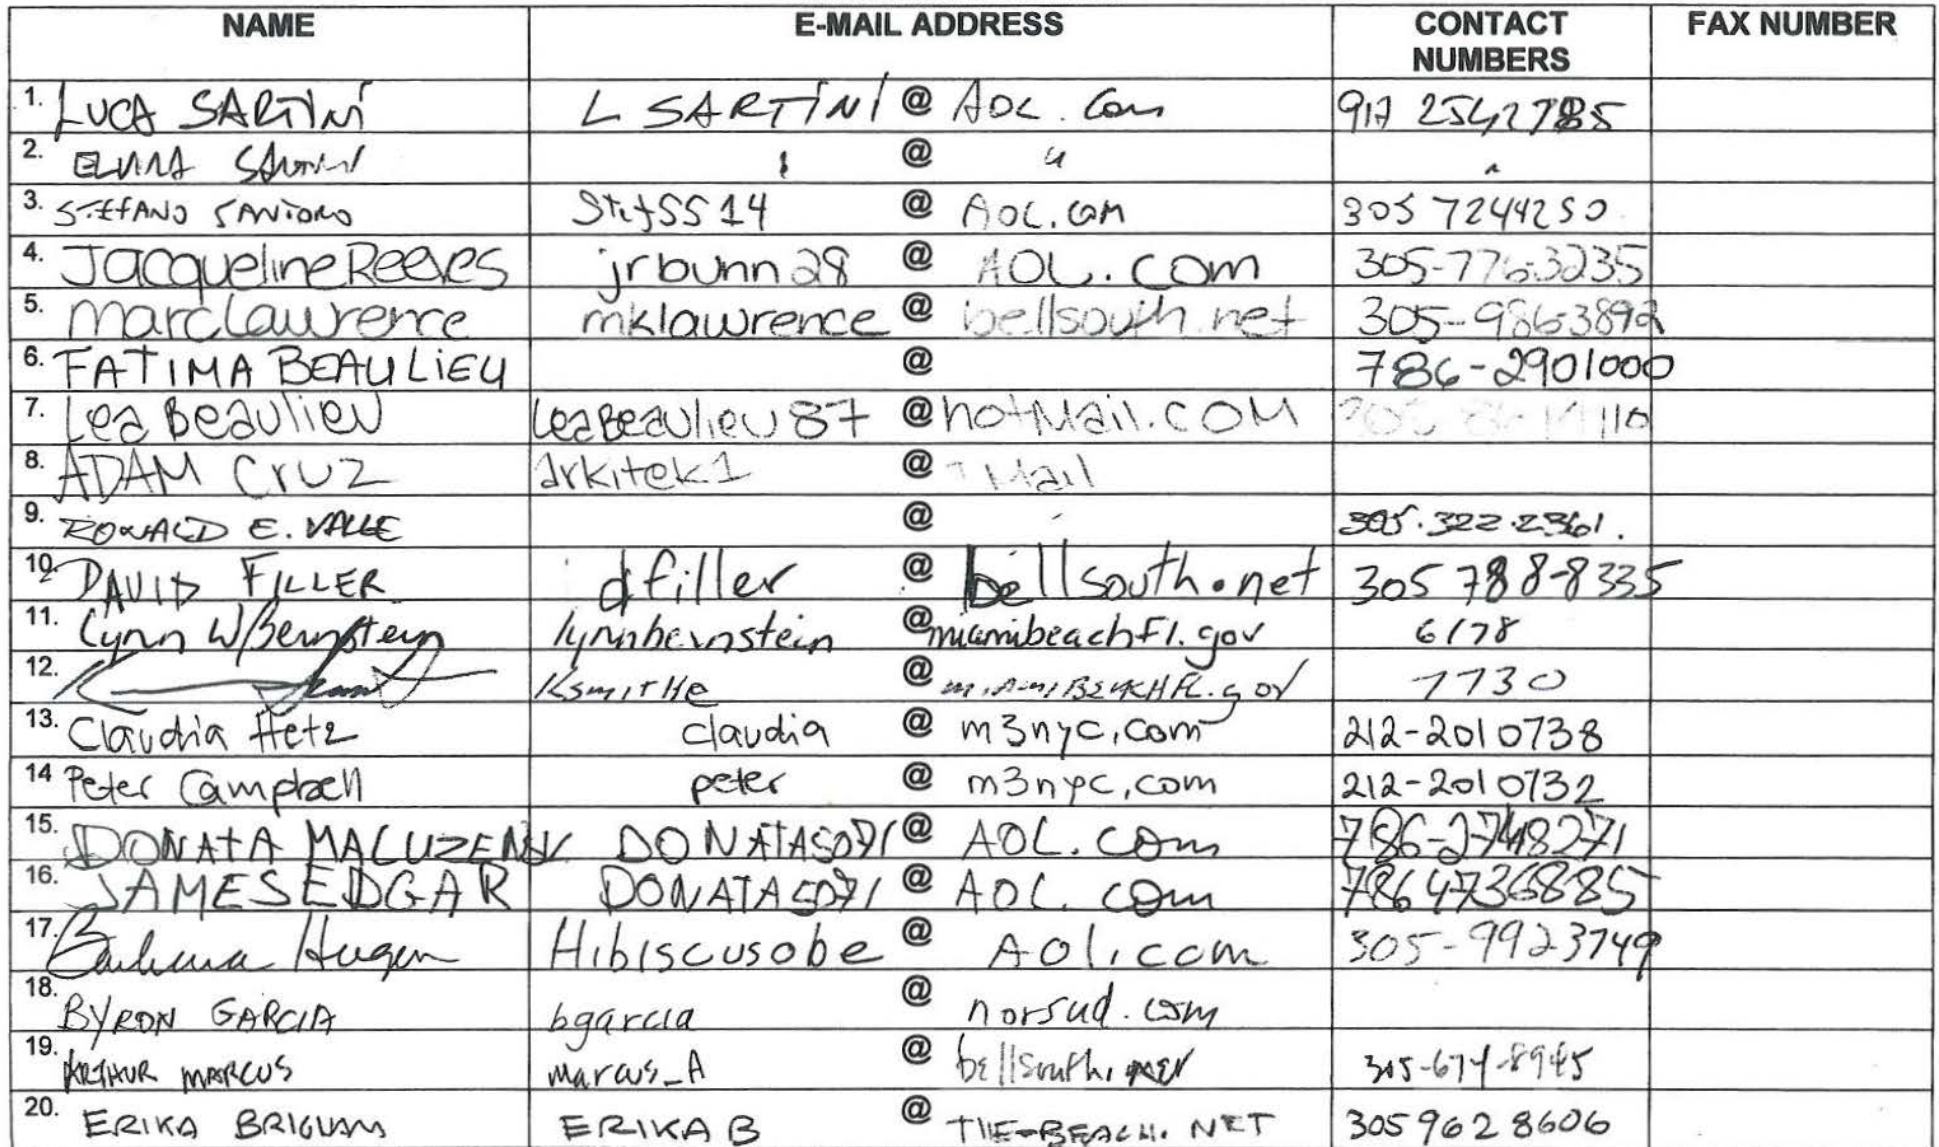 NAME E-MAIL ADDRESS CONTACT NUMBERS FAX NUMBER
1. LUCA SARTINI L SARTINI @ AOL. Com 917 2542785
2. SARTINI @ "
3. STEFANO SANTORO Stefss14 @ AOL.COM 305 7244250
4. Jacqueline Reeves jrbunn28 @ AOL.COM 305-776-3235
5. Marc Lawrence mklawrence @ bellsouth.net 305-986-3892
6. FATIMA BEAULIEU @ 786-2901000
7. Lea Beaulieu LeaBeaulieu87 @ hotMail.COM
8. ADAM Cruz arkitek1 @ Mail
9. RONALD E. VALLE @ 305.322.2361.
10. DAVID FILLER dfiller @ bellsouth.net 305 788-8335
11. Lynn W/Bernstein lynnbernstein @ miamibeachfl.gov 6178
12. @ MIAMIBEACHFL.gov 7730
13. Claudia Hetz claudia @ m3nyc.com 212-2010738
14 Peter Campbell peter @ m3nyc.com 212-2010732
15. DONATA DONATA5071 @ AOL.com 786-2748271
16. JAMES EDGAR DONATA5071 @ AOL.com 7864736885
17. Hibiscusobe @ Aol.com 305-9923749
18. BYRON GARCIA bgarcia @ norsud.com
19. ARTHUR MARCUS marcus_A @ bellsouth.net 305-674-8945
20. ERIKA BRIGHAM ERIKAB @ THE-BEACH.NET 305 962 8606